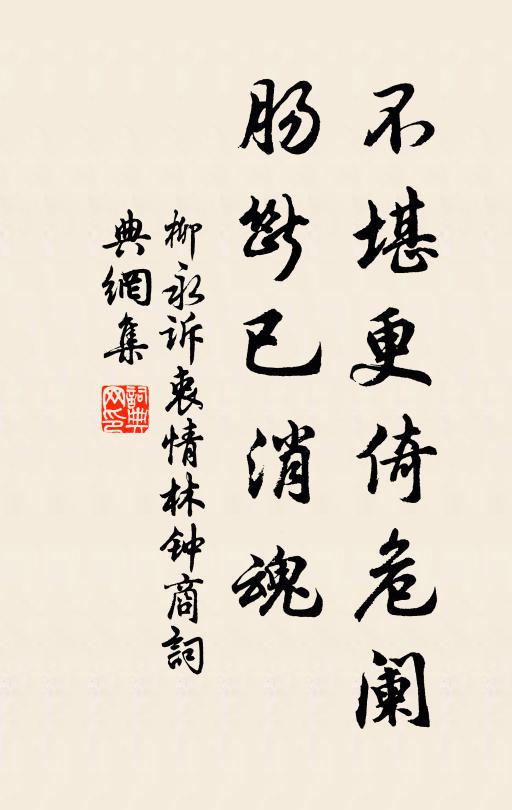 不堪更倚危阑
肠断已消魂
柳永诉衷情林钟商詞
典網集
詞典网印